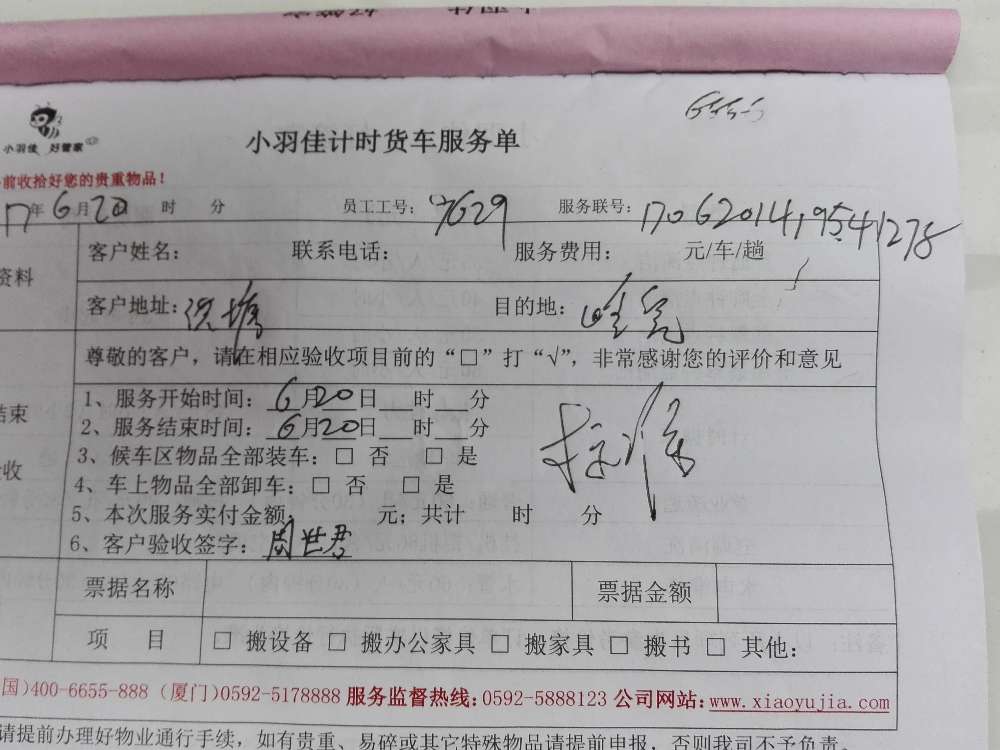 小羽佳 好管家
小羽佳计时货车服务单
前收拾好您的贵重物品！
17年6月20 时 分 员工工号：97629 服务联号：17062014195541278
资料
客户姓名： 联系电话： 服务费用： 元/车/趟
客户地址：洪塘 目的地：
尊敬的客户，请在相应验收项目前的“□”打“√”，非常感谢您的评价和意见
结束
验收
1、服务开始时间：6月20日 时 分
2、服务结束时间：6月20日 时 分
3、候车区物品全部装车：□ 否 □ 是
4、车上物品全部卸车：□ 否 □ 是
5、本次服务实付金额： 元；共计 时 分
6、客户验收签字：周世君
票据名称 票据金额
项 目 □ 搬设备 □ 搬办公家具 □ 搬家具 □ 搬书 □ 其他：
国）400-6655-888（厦门）0592-5178888 服务监督热线：0592-5888123 公司网站：www.xiaoyujia.com
请提前办理好物业通行手续，如有贵重、易碎或其它特殊物品请提前申报，否则我司不予负责。